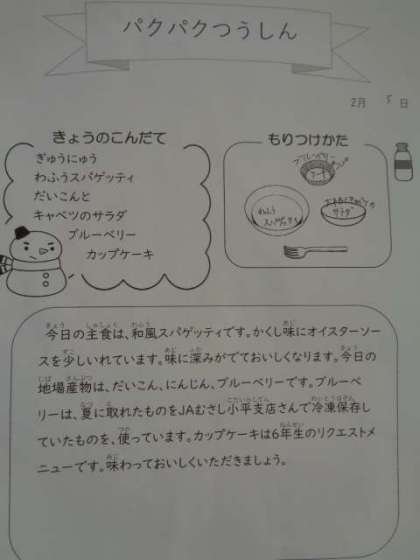 パクパクつうしん
2月 5日
きょうのこんだて
ぎゅうにゅう
わふうスパゲッティ
だいこんと
キャベツのサラダ
ブルーベリー
カップケーキ
もりつけかた
ブルーベリーカップ
ケーキ
わふう
スパゲッティ
サラダ
今日の主食は、和風スパゲッティです。かくし味にオイスターソー
スを少しいれています。味に深みがでておいしくなります。今日の
地場産物は、だいこん、にんじん、ブルーベリーです。ブルーベ
リーは、夏に取れたものをJAむさし小平支店さんで冷凍保存し
ていたものを、使っています。カップケーキは6年生のリクエストメ
ニューです。味わっておいしくいただきましょう。